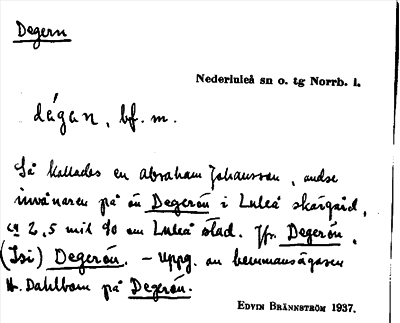 Degern
Nederluleå sn o. tg Norrb. l.
dágan, bf. m.
Så kallades en Abraham Johansson, andse
invånaren på ön Degerön i Luleå skärgård,
ca 2,5 mil SO om Luleå stad. Jfr. Degerön,
(Isi) Degerön. - Uppg. av hemmansägaren
H. Dahlbom på Degerön.
EDVIN BRÄNNSTRÖM 1937.